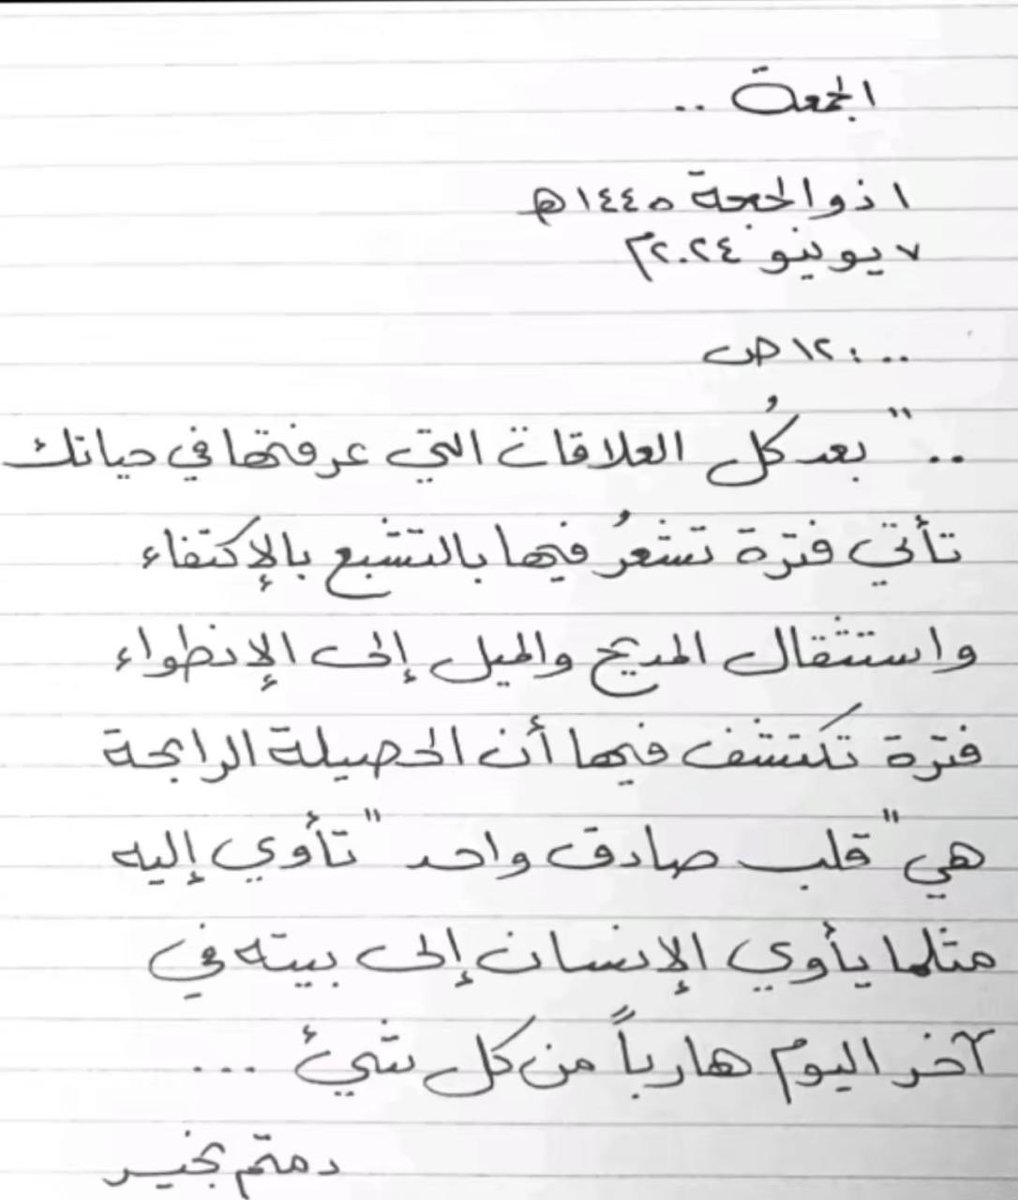 الجمعة ..
١ ذو الحجة ١٤٤٥ هـ
٧ يونيو ٢٠٢٤ م
١٢:٠٠ ص
.. " بعد كُل العلاقات التي عرفتها في حياتك
تأتي فترة تشعرُ فيها بالتشبع بالإكتفاء
واستثقال المديح والميل إلى الإنطواء
فترة تكتشف فيها أن الحصيلة الرابحة
هي " قلب صادق واحد " تأوي إليه
مثلما يأوي الإنسان إلى بيته في
آخر اليوم هارباً من كل شيئ ...
دمتم بخير